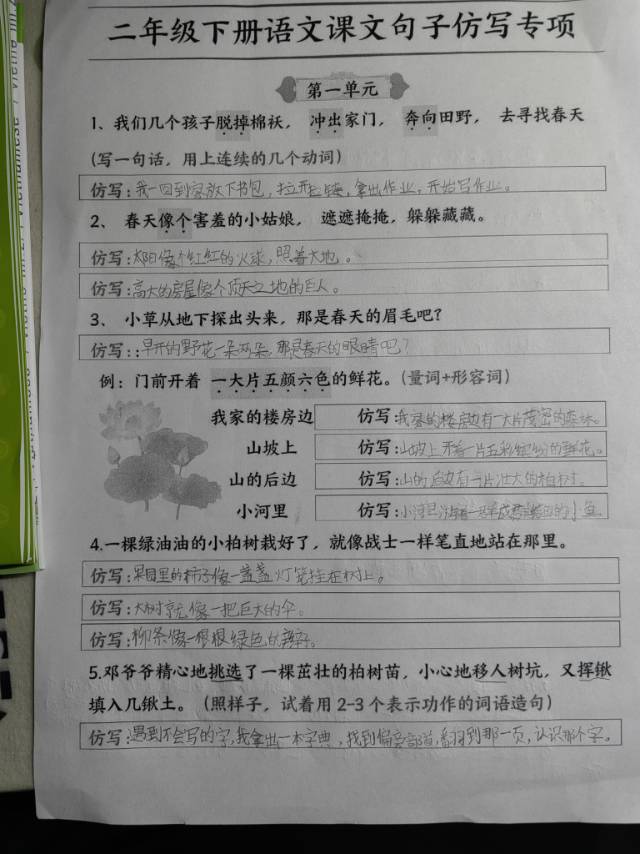 二年级下册语文课文句子仿写专项
第一单元
1、我们几个孩子脱掉棉袄, 冲出家门, 奔向田野, 去寻找春天
(写一句话,用上连续的几个动词)
仿写:我一回到家放下书包,拉开拉链,拿出作业,开始写作业。
2、 春天像个害羞的小姑娘, 遮遮掩掩,躲躲藏藏。
仿写:太阳像个红红的火球,照着大地。
仿写:高大的房屋像个顶天立地的巨人。
3、 小草从地下探出头来,那是春天的眉毛吧?
仿写::早开的野花一朵两朵,那是春天的眼睛吧?
例:门前开着 一大片五颜六色的鲜花。(量词+形容词)
我家的楼房边 仿写:我家的楼房边有一大片茂密的森林。
山坡上 仿写:山坡上开着一片五彩缤纷的鲜花。
山的后边 仿写:山的后边有一片壮大的柏树。
小河里 仿写:小河里游着一群的小鱼。
4.一棵绿油油的小柏树栽好了,就像战士一样笔直地站在那里。
仿写:果园里的柿子像一盏盏灯笼挂在树上。
仿写:大树就像一把巨大的伞。
仿写:柳条像一根根绿色的辫子。
5.邓爷爷精心地挑选了一棵茁壮的柏树苗,小心地移人树坑,又挥锹
填入几锹土。(照样子,试着用2-3个表示功作的词语造句)
仿写:遇到不会写的字,我拿出一本字典,找到偏旁部首,翻到那一页,认识那个字。